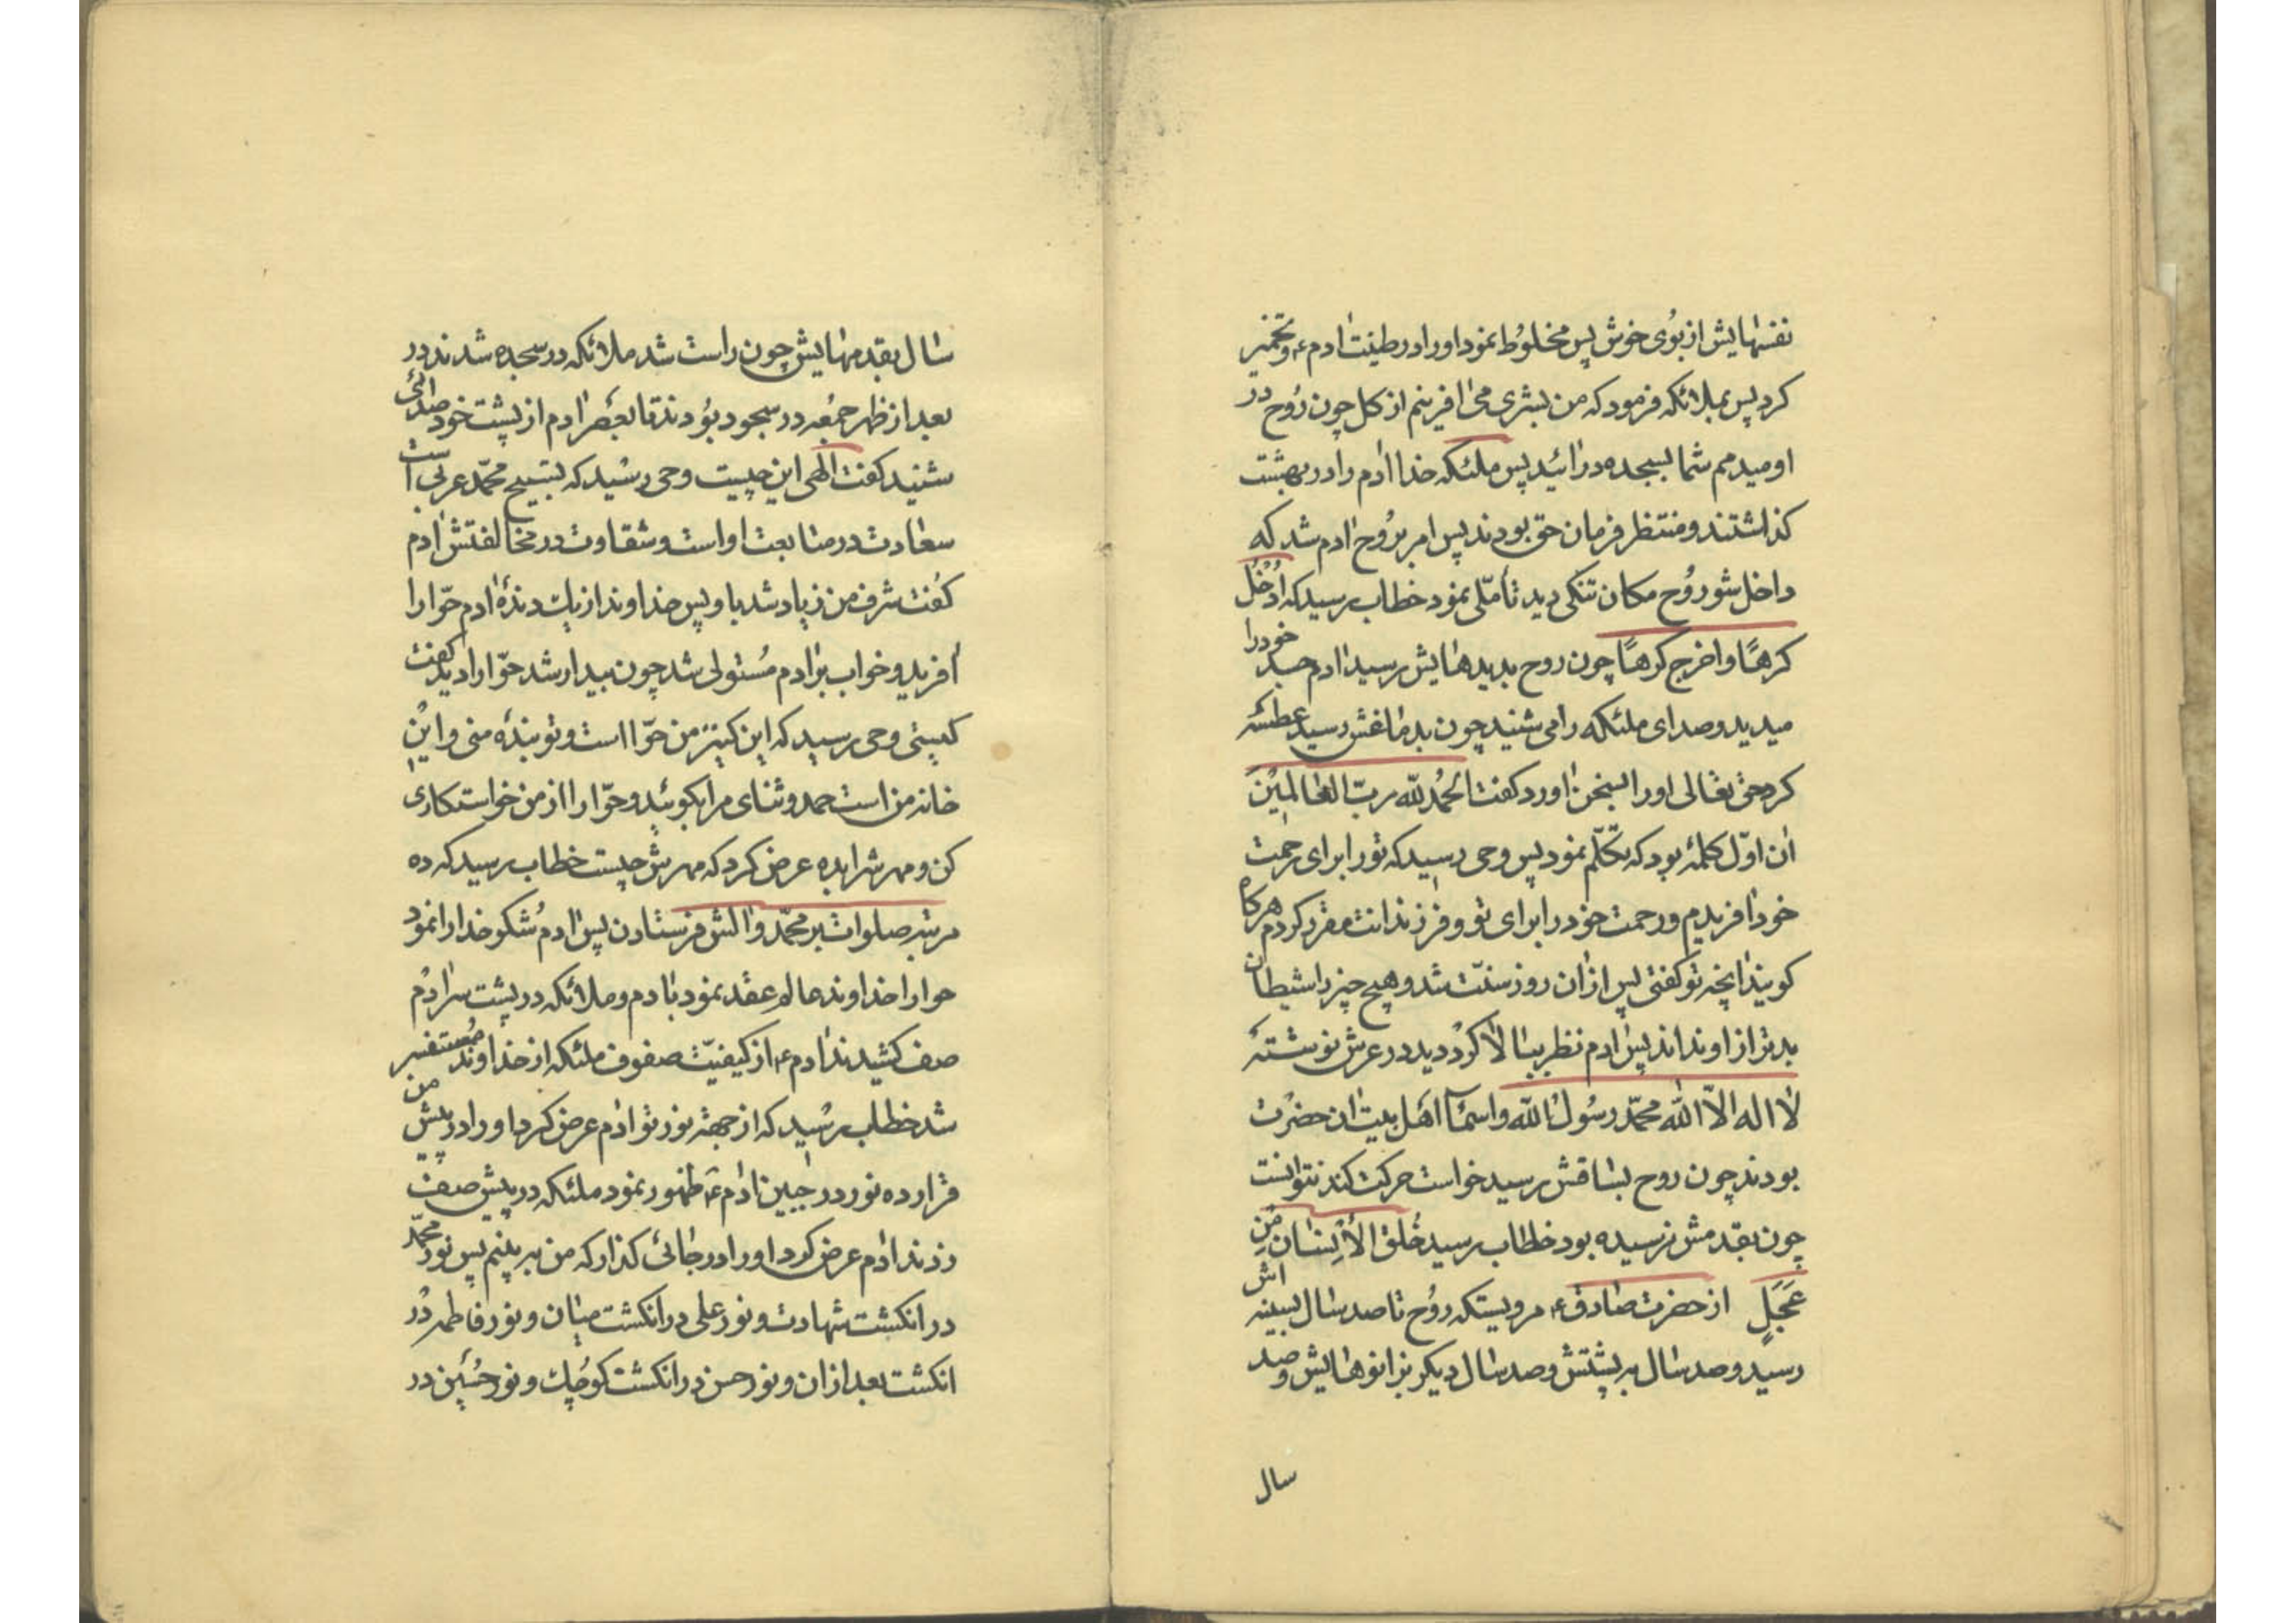 نفسهایش از بوی خوش پس مخلوط نمود او را در طینت ادم ع و تخمیر
کرد پس بملائکه فرمود که من بشری می افرینم از کل چون روح در
او میدمم شما بسجده درائید پس ملئکه خدا ادم را در بهشت
کذاشتند و منتظر فرمان حق بودند پس امر بروح ادم شد که
داخل شو روح مکان تنکی دید تأملی نمود خطاب رسید که ادخل
کرها و اخرج کرها چون روح بدیدهایش رسید ادم جسد خود را
میدید و صدای ملئکه را می شنید چون بدماغش رسید عطسه
کرد حق تعالی او را بسخن اورد کفت الحمد لله رب العالمین
ان اول کلمهٔ بود که تکلم نمود پس وحی رسید که تو را برای رحمت
خود افریدم و رحمت خود را برای تو و فرزندانت مقرر کردم هر کاه
کویند انچه تو کفتی پس از ان روز سنت شد و هیچ چیز را شیطان
بدتر از او نداند پس ادم نظر ببالا کرد دید در عرش نوشتهٔ
لا اله الا الله محمد رسول الله و اسماء اهل بیت ان حضرت
بودند چون روح بساقش رسید خواست حرکت کند نتوانست
چون بقدمش نرسیده بود خطاب رسید خلق الانسان من
عجل از حضرت صادق ع مرویستکه روح تا صد سال بسینه اش
رسید و صد سال بر پشتش و صد سال دیکر بزانوهایش و صد
سال
سال بقدمهایش چون راست شد ملائکه در سجده شدند در
بعد از ظهر جمعه در سجود بودند تا بعصر ادم از پشت خود صدائی
شنید کفت الهی این چیست وحی رسید که تسبیح محمد عربی است
سعادت در متابعت او است و شقاوت در مخالفتش ادم
کفت شرف من زیاد شد باو پس خداوند از یک دندهٔ ادم حوا را
افرید و خواب بر ادم مستولی شد چون بیدار شد حوا را دید کفت
کیستی وحی رسید که این کنیز من حوا است و تو بنده منی و این
خانه من است حمد و ثنای مرا بکوئید و حوا را از من خواستکاری
کن و مهرش را بده عرض کرد که مهرش چیست خطاب رسید که ده
مرتبه صلوات بر محمد و الش فرستادن پس ادم شکر خدا را نمود
حوا را خداوند عالم عقد نمود بادم و ملائکه در پشت سر ادم
صف کشیدند ادم ع از کیفیت صفوف ملئکه از خداوند مستفسر
شد خطاب رسید که از جهة نور تو ادم عرض کرد او را در پیش من
قرار ده نور در جبین ادم ع ظهور نمود ملئکه در پیش صف
زدند ادم عرض کرد او را در جائی کذار که من به بینم پس نور محمد
در انکشت شهادت و نور علی در انکشت میان و نور فاطمه در
انکشت بعد از ان و نور حسن در انکشت کوچک و نور حسین در